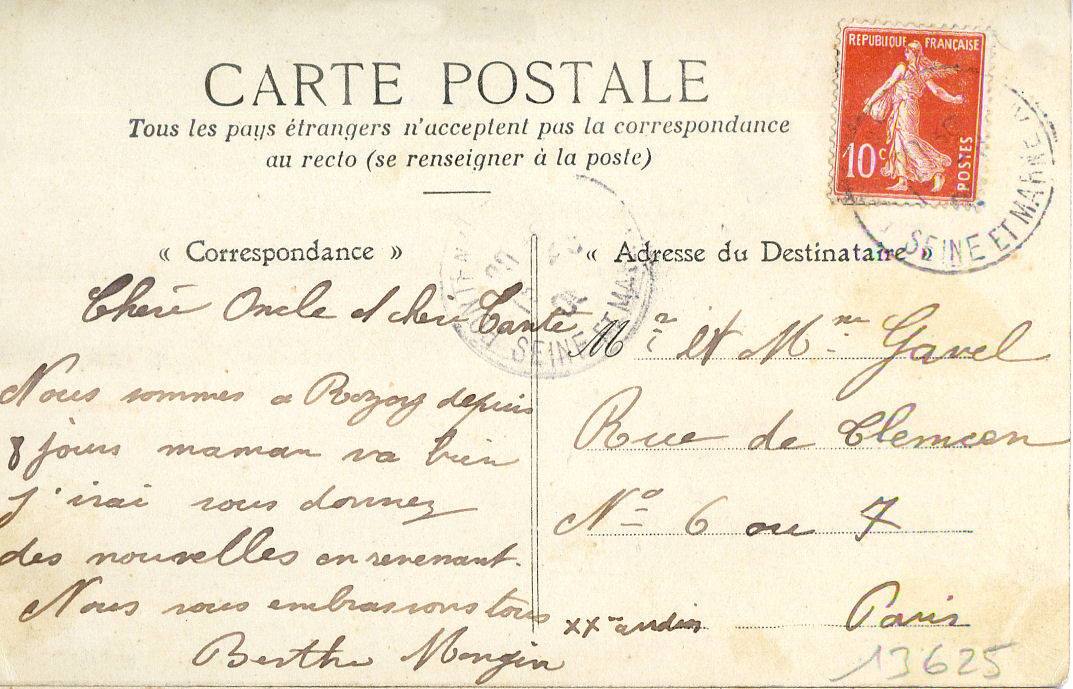 CARTE POSTALE
Tous les pays étrangers n'acceptent pas la correspondance
au recto (se renseigner à la poste)
REPUBLIQUE FRANÇAISE
10c POSTES
SEINE ET MARNE
« Correspondance »
Chère Oncle et chère Tante
Nous sommes a Rozoy depuis
8 jours maman va bien
j'irai vous donnez
des nouvelles en revenant.
Nous vous embrassons tous
Berthe Mongin
SEINE ET MARNE
« Adresse du Destinataire »
Mr et Mme Gavel
Rue de
No 6 ou 7
XXme Paris
13625